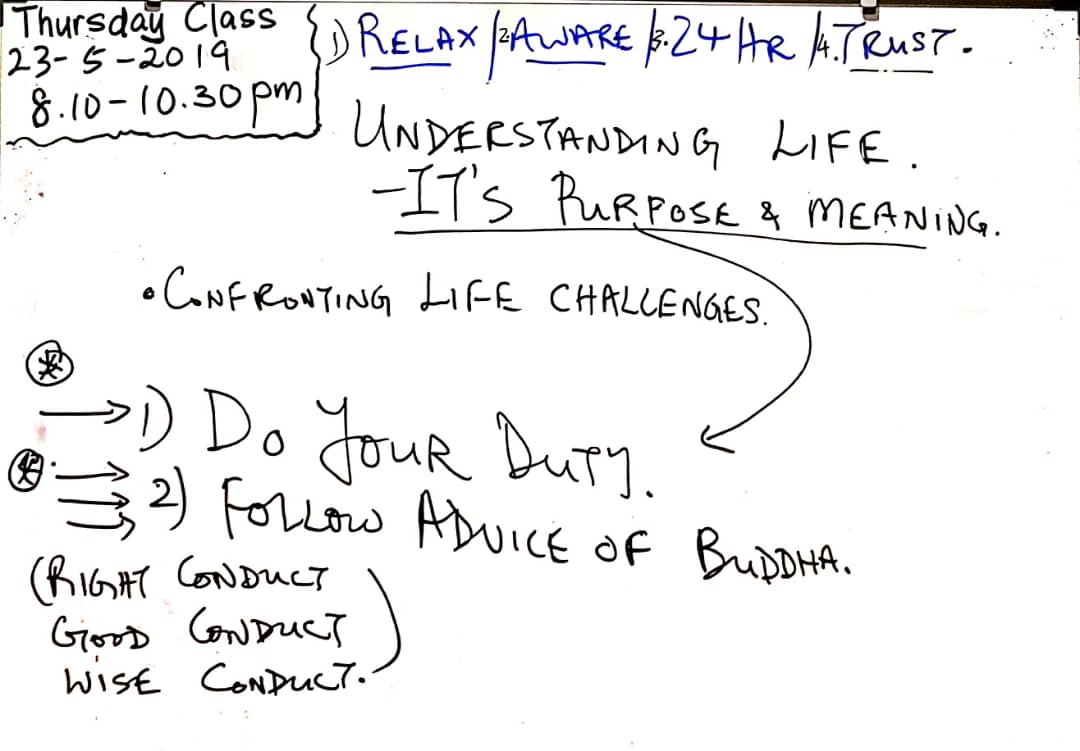 Thursday Class
23-5-2019
8.10-10.30pm
1) RELAX /2.AWARE /3.24 HR /4.TRUST.
UNDERSTANDING LIFE.
-IT'S PURPOSE & MEANING.
• CONFRONTING LIFE CHALLENGES.
→1) DO YOUR DUTY.
2) FOLLOW ADVICE OF BUDDHA.
(RIGHT CONDUCT
GOOD CONDUCT
WISE CONDUCT.)